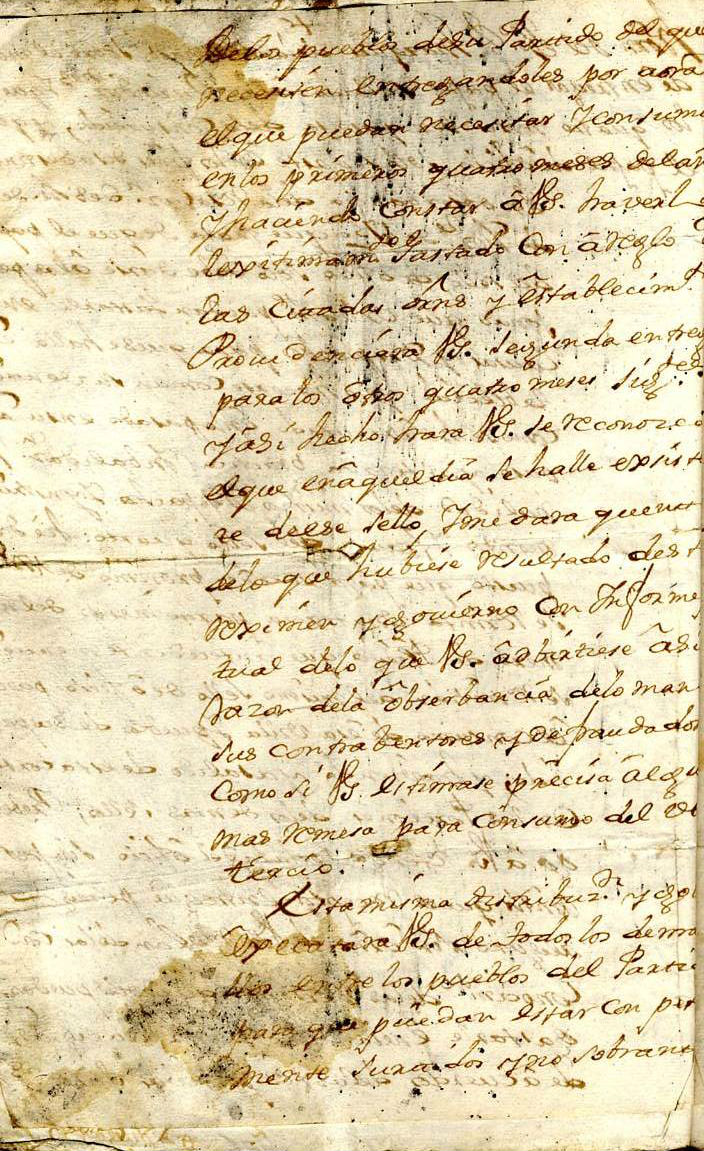 delos pueblos desu Partido del que
necesiten entregandoles por aora
elque puedan necesitar Yconsumi
enlos primeros quatro meses delañ
Yhaciendo constar a VS. haverl
lexitimam.te gastado Con areglo
las Citadas orns y establecim.t
Providenciara VS. segunda entreg
paralos otros quatro meses sig.tes
y asi hecho hara VS. se reconozc
elque enaquel dia se halle exsist
te deese sello, Yme dara quent
delo que hubiese resultado dest
reximen y govierno Con Informe
tual delo que VS. adbirtiese asi
razon dela observancia delo man
sus contrabentores y defraudador
Como si VS. estimase precisa algu
mas remesa para consumo del
tercio.
Esta misma distribuz.n y go
executara VS. de todos los dema
entre los pueblos del Parti
para que puedan estar con
mente surtidos yno sobrant